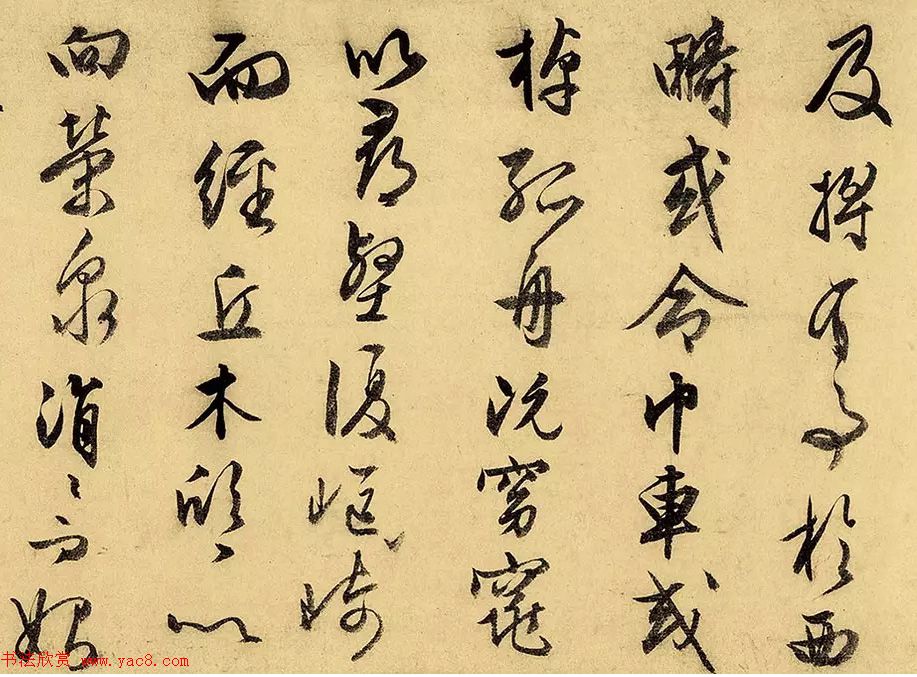 及將有事於西
疇或命巾車或
棹孤舟既窈窕
以尋壑復嶇崎
而經丘木欣々以
向榮泉涓々而始
书法欣赏 www.yac8.com